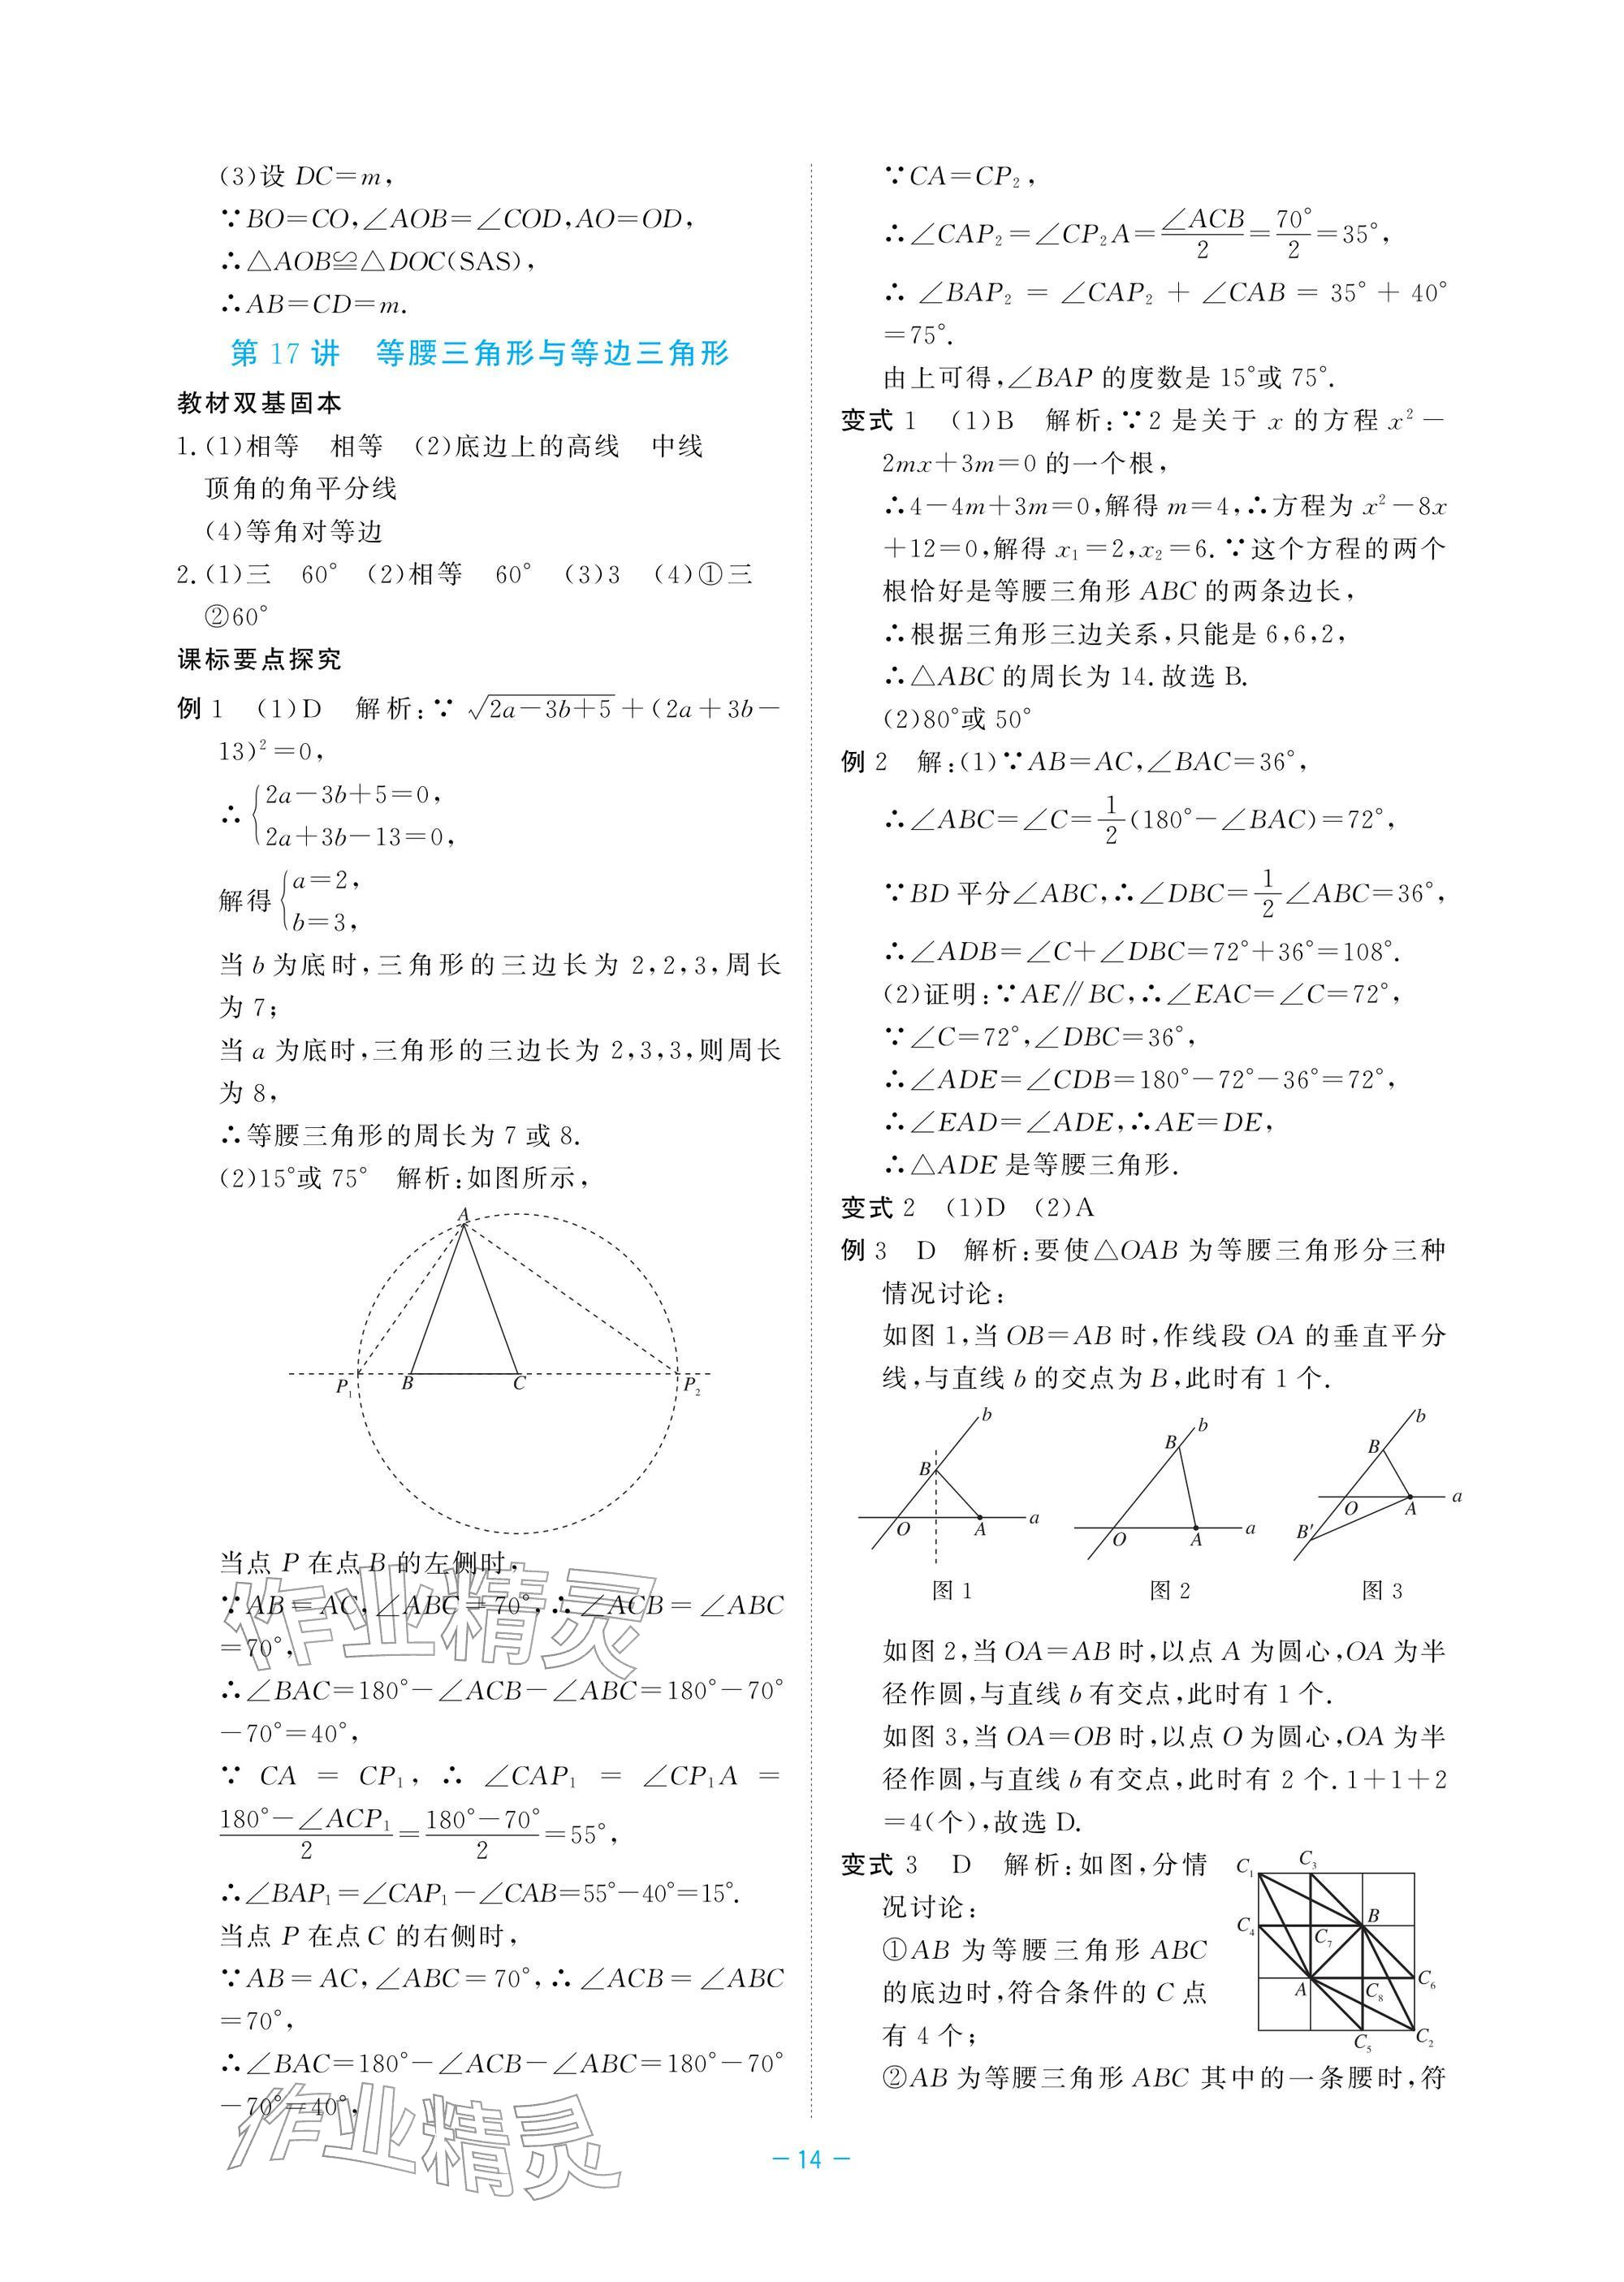 (3)设 DC=m,
∵BO=CO,∠AOB=∠COD,AO=OD,
∴△AOB≌△DOC(SAS),
∴AB=CD=m.
第 17 讲　等腰三角形与等边三角形
教材双基固本
1.(1)相等　相等　(2)底边上的高线　中线
顶角的角平分线
(4)等角对等边
2.(1)三　60°　(2)相等　60°　(3)3　(4)①三
②60°
课标要点探究
例 1　(1)D　解析:∵ √(2a−3b+5)+(2a+3b−
13)²=0,
∴{2a−3b+5=0,
2a+3b−13=0,
解得{a=2,
b=3,
当 b 为底时,三角形的三边长为 2,2,3,周长
为 7;
当 a 为底时,三角形的三边长为 2,3,3,则周长
为 8,
∴等腰三角形的周长为 7 或 8.
(2)15°或 75°　解析:如图所示,
A
P₁ B C P₂
当点 P 在点 B 的左侧时,
∵AB=AC,∠ABC=70°,∴∠ACB=∠ABC
=70°,
∴∠BAC=180°−∠ACB−∠ABC=180°−70°
−70°=40°,
∵ CA = CP₁, ∴ ∠CAP₁ = ∠CP₁A =
(180°−∠ACP₁)/2=(180°−70°)/2=55°,
∴∠BAP₁=∠CAP₁−∠CAB=55°−40°=15°.
当点 P 在点 C 的右侧时,
∵AB=AC,∠ABC=70°,∴∠ACB=∠ABC
=70°,
∴∠BAC=180°−∠ACB−∠ABC=180°−70°
−70°=40°,
∵CA=CP₂,
∴∠CAP₂=∠CP₂A=∠ACB/2=70°/2=35°,
∴ ∠BAP₂ = ∠CAP₂ + ∠CAB = 35° + 40°
=75°.
由上可得,∠BAP 的度数是 15°或 75°.
变式 1　(1)B　解析:∵2 是关于 x 的方程 x²−
2mx+3m=0 的一个根,
∴4−4m+3m=0,解得 m=4,∴方程为 x²−8x
+12=0,解得 x₁=2,x₂=6.∵这个方程的两个
根恰好是等腰三角形 ABC 的两条边长,
∴根据三角形三边关系,只能是 6,6,2,
∴△ABC 的周长为 14.故选 B.
(2)80°或 50°
例 2　解:(1)∵AB=AC,∠BAC=36°,
∴∠ABC=∠C=1/2(180°−∠BAC)=72°,
∵BD 平分∠ABC,∴∠DBC=1/2∠ABC=36°,
∴∠ADB=∠C+∠DBC=72°+36°=108°.
(2)证明:∵AE∥BC,∴∠EAC=∠C=72°,
∵∠C=72°,∠DBC=36°,
∴∠ADE=∠CDB=180°−72°−36°=72°,
∴∠EAD=∠ADE,∴AE=DE,
∴△ADE 是等腰三角形.
变式 2　(1)D　(2)A
例 3　D　解析:要使△OAB 为等腰三角形分三种
情况讨论:
如图 1,当 OB=AB 时,作线段 OA 的垂直平分
线,与直线 b 的交点为 B,此时有 1 个.
b B O A a
图 1
b B O A a
图 2
b B O A a B′
图 3
如图 2,当 OA=AB 时,以点 A 为圆心,OA 为半
径作圆,与直线 b 有交点,此时有 1 个.
如图 3,当 OA=OB 时,以点 O 为圆心,OA 为半
径作圆,与直线 b 有交点,此时有 2 个.1+1+2
=4(个),故选 D.
变式 3　D　解析:如图,分情
况讨论:
①AB 为等腰三角形 ABC
的底边时,符合条件的 C 点
有 4 个;
C₁ C₃
C₄ C₇ B
A C₈ C₆
C₅ C₂
②AB 为等腰三角形 ABC 其中的一条腰时,符
作业精灵
作业精灵
− 14 −